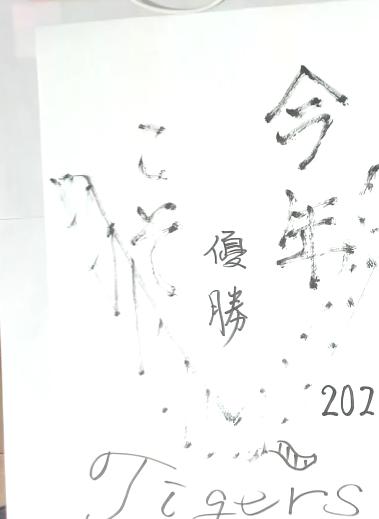 今年
こそ
優勝
202
Tigers